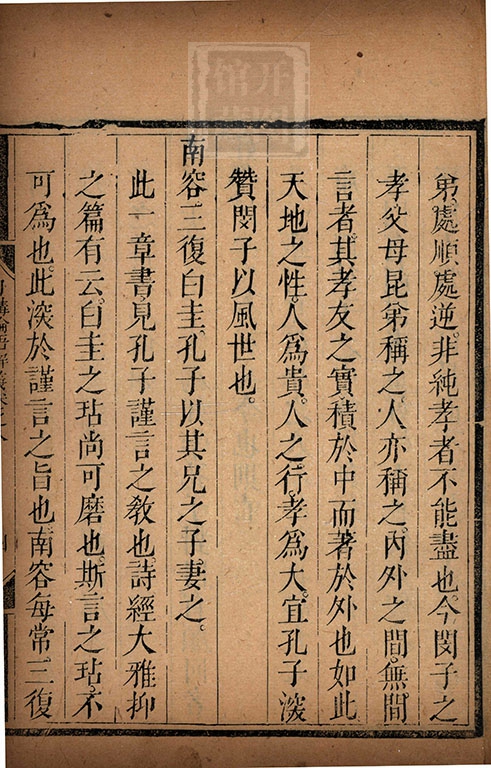 弟。處順處逆。非純孝者不能盡也。今閔子之
孝。父母昆弟稱之。人亦稱之。內外之間。無間
言者。其孝友之實。積於中而著於外也如此
天地之性。人為貴。人之行。孝為大。宜孔子深
贊閔子以風世也。
南容三復白圭。孔子以其兄之子。妻之。
此一章書。見孔子謹言之教也。詩經大雅抑
之篇有云。白圭之玷尚可磨也。斯言之玷。不
可為也。此深於謹言之旨也。南容每常三復
日講論語解義卷之八